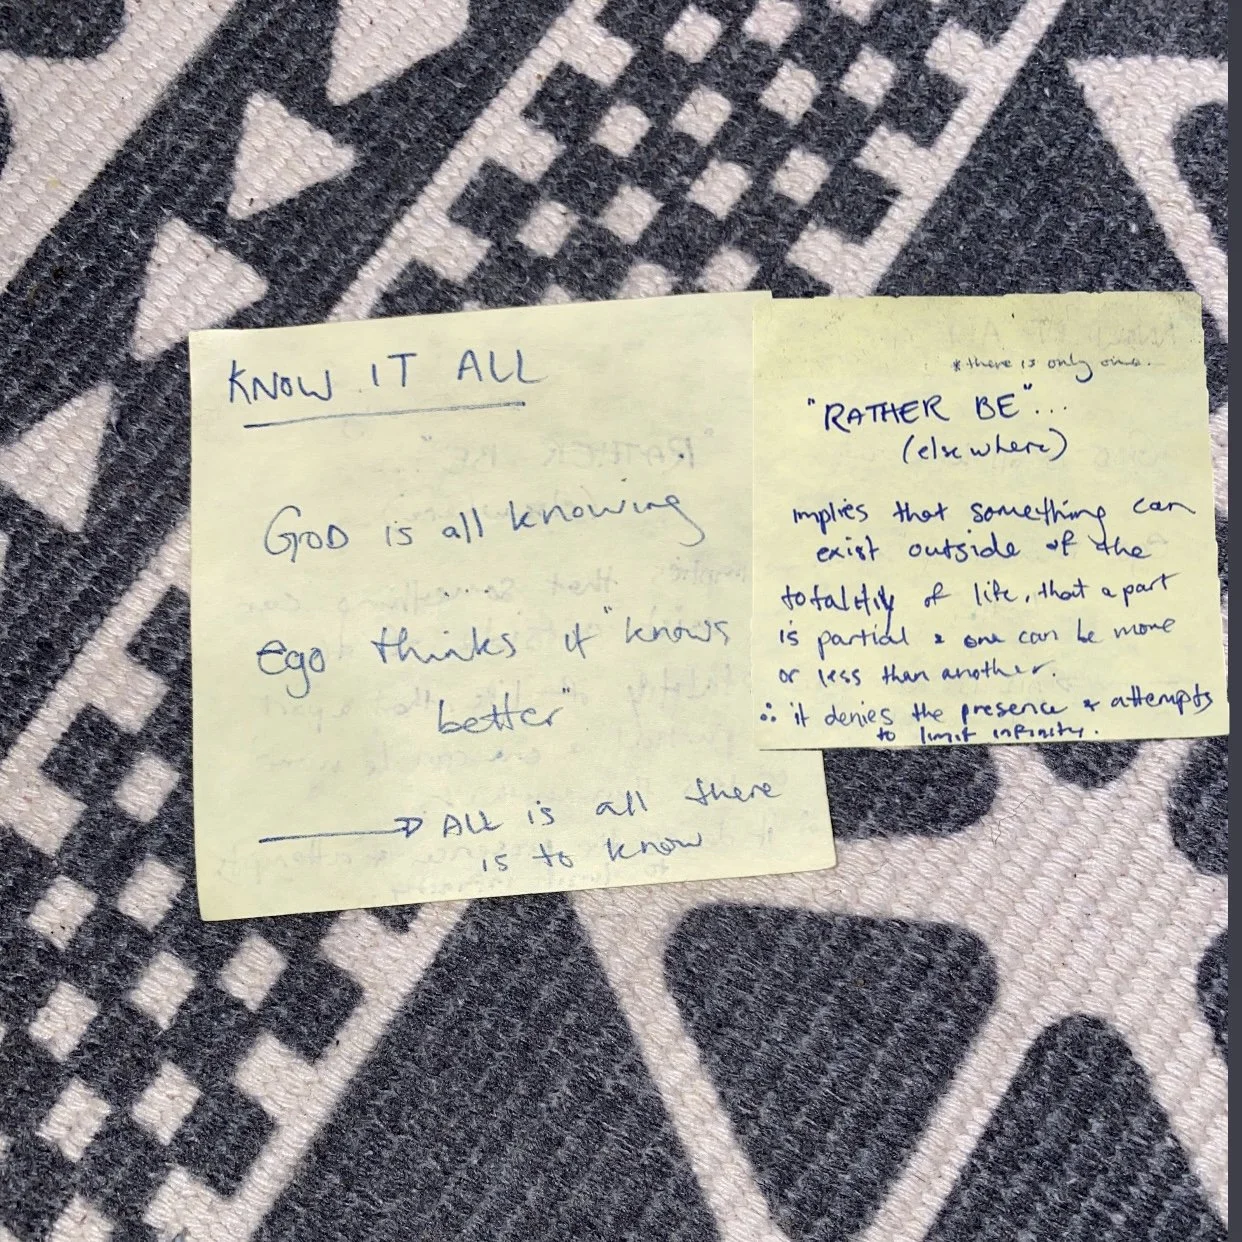 KNOW IT ALL
GOD is all knowing
ego thinks it "knows
better"
→ ALL is all there
is to know
*there is only one.
"RATHER BE"...
(elsewhere)
implies that something can
exist outside of the
totality of life, that a part
is partial & one can be more
or less than another.
∴ it denies the presence & attempts
to limit infinity.